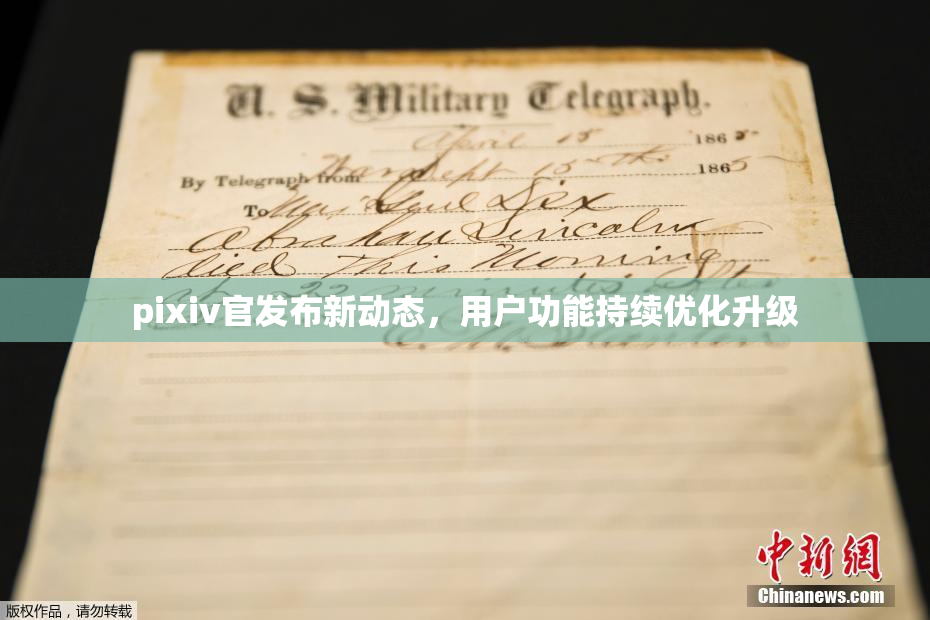 U. S. Military Telegraph.
April 15 1865
By Telegraph from War Dept 15th 1865
To Maj Genl Dix
Abraham Lincoln
died This Morning
at 22 minutes after
pixiv官发布新动态，用户功能持续优化升级
E. M. Stanton
中新网
Chinanews.com
版权作品，请勿转载